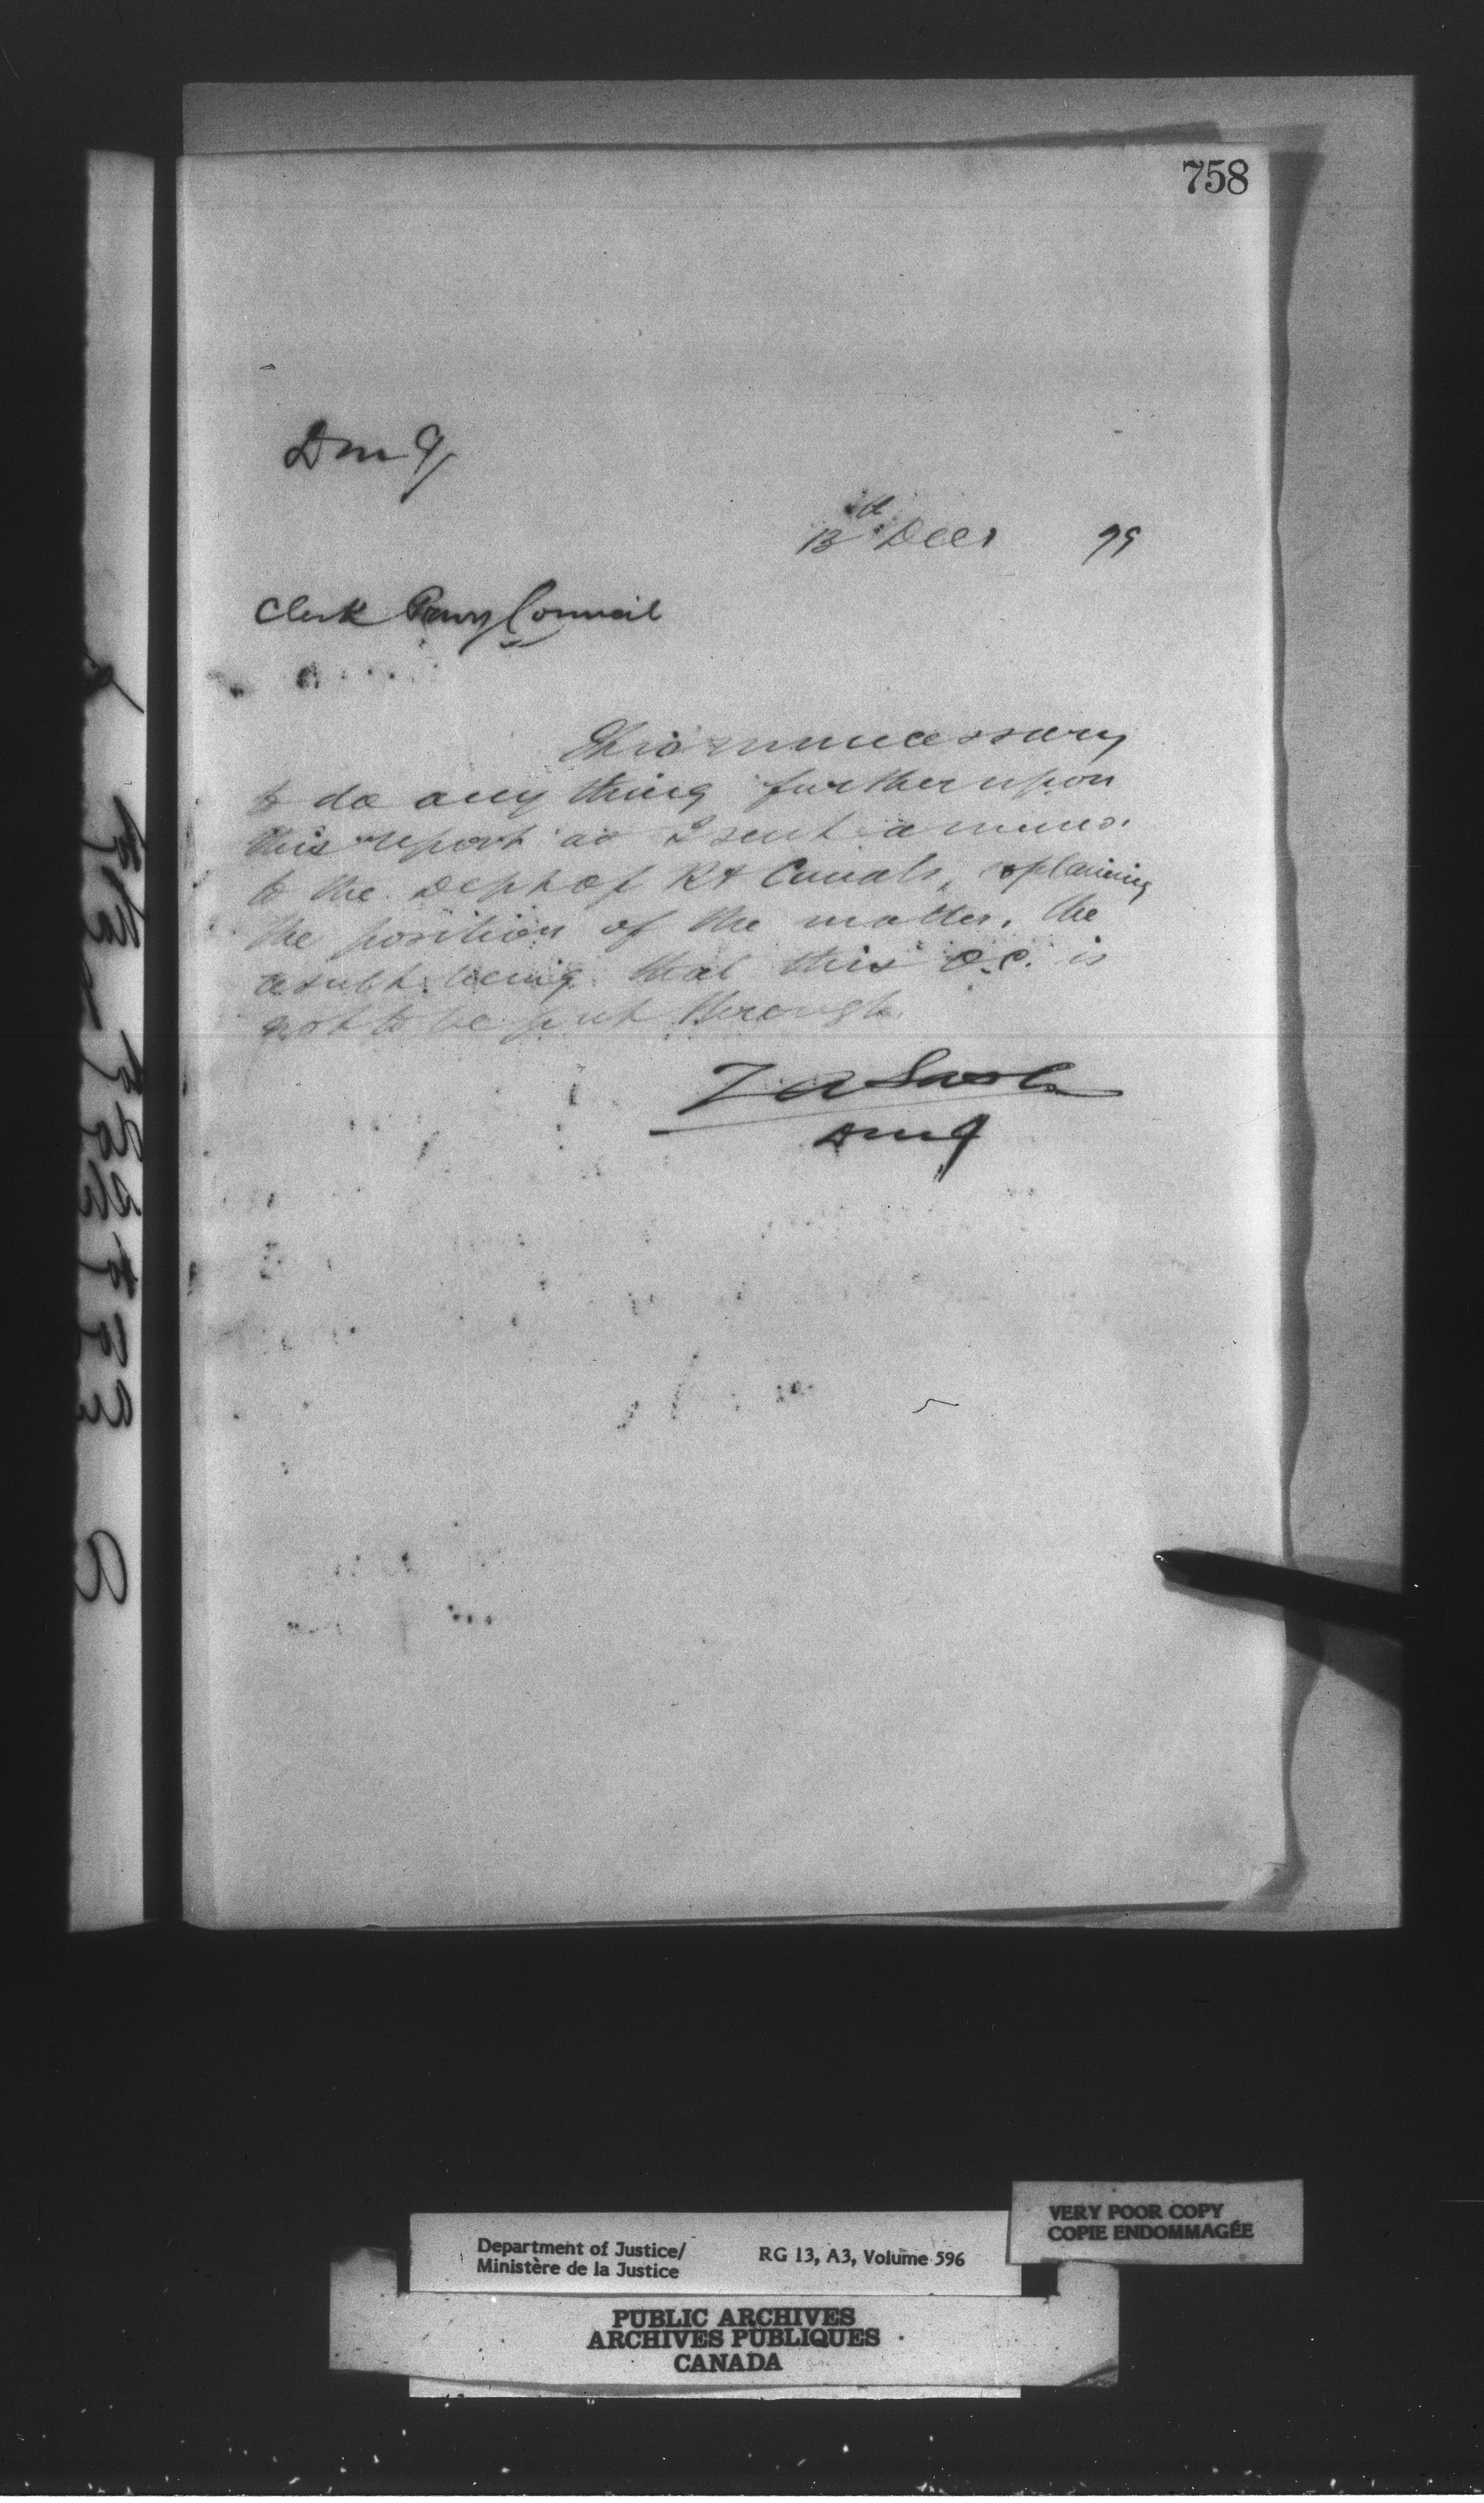 758
DmJ
13th Decr 79
Clerk Privy Council
It is unnecessary
to do any thing further upon
this report as I sent a memo.
to the Dept of R & Canals, explaining
the position of the matter, the
result being that this O.C. is
not to be put through.
Z A Lash
DmJ
VERY POOR COPY
COPIE ENDOMMAGÉE
Department of Justice/
Ministère de la Justice
RG 13, A3, Volume 596
PUBLIC ARCHIVES
ARCHIVES PUBLIQUES
CANADA